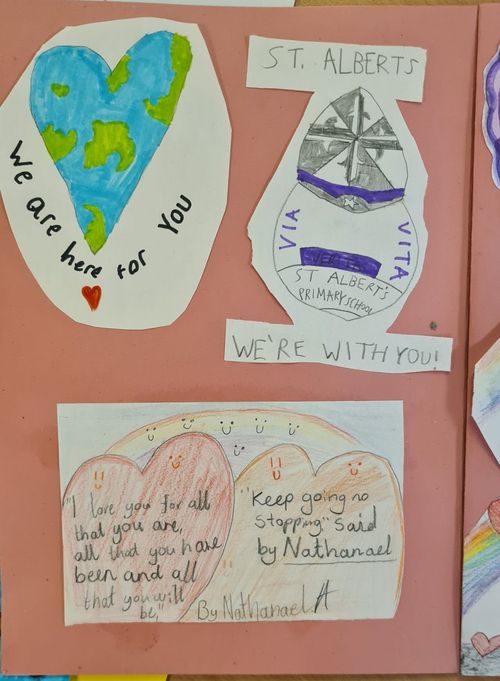 We are here for You
ST. ALBERTS
VIA
VITA
VERITAS
ST ALBERT'S
PRIMARY SCHOOL
WE'RE WITH YOU!
"I love you for all
that you are,
all that you have
been and all
that you will
be,"
"Keep going no
stopping" said
by Nathanael
By Nathanael. A